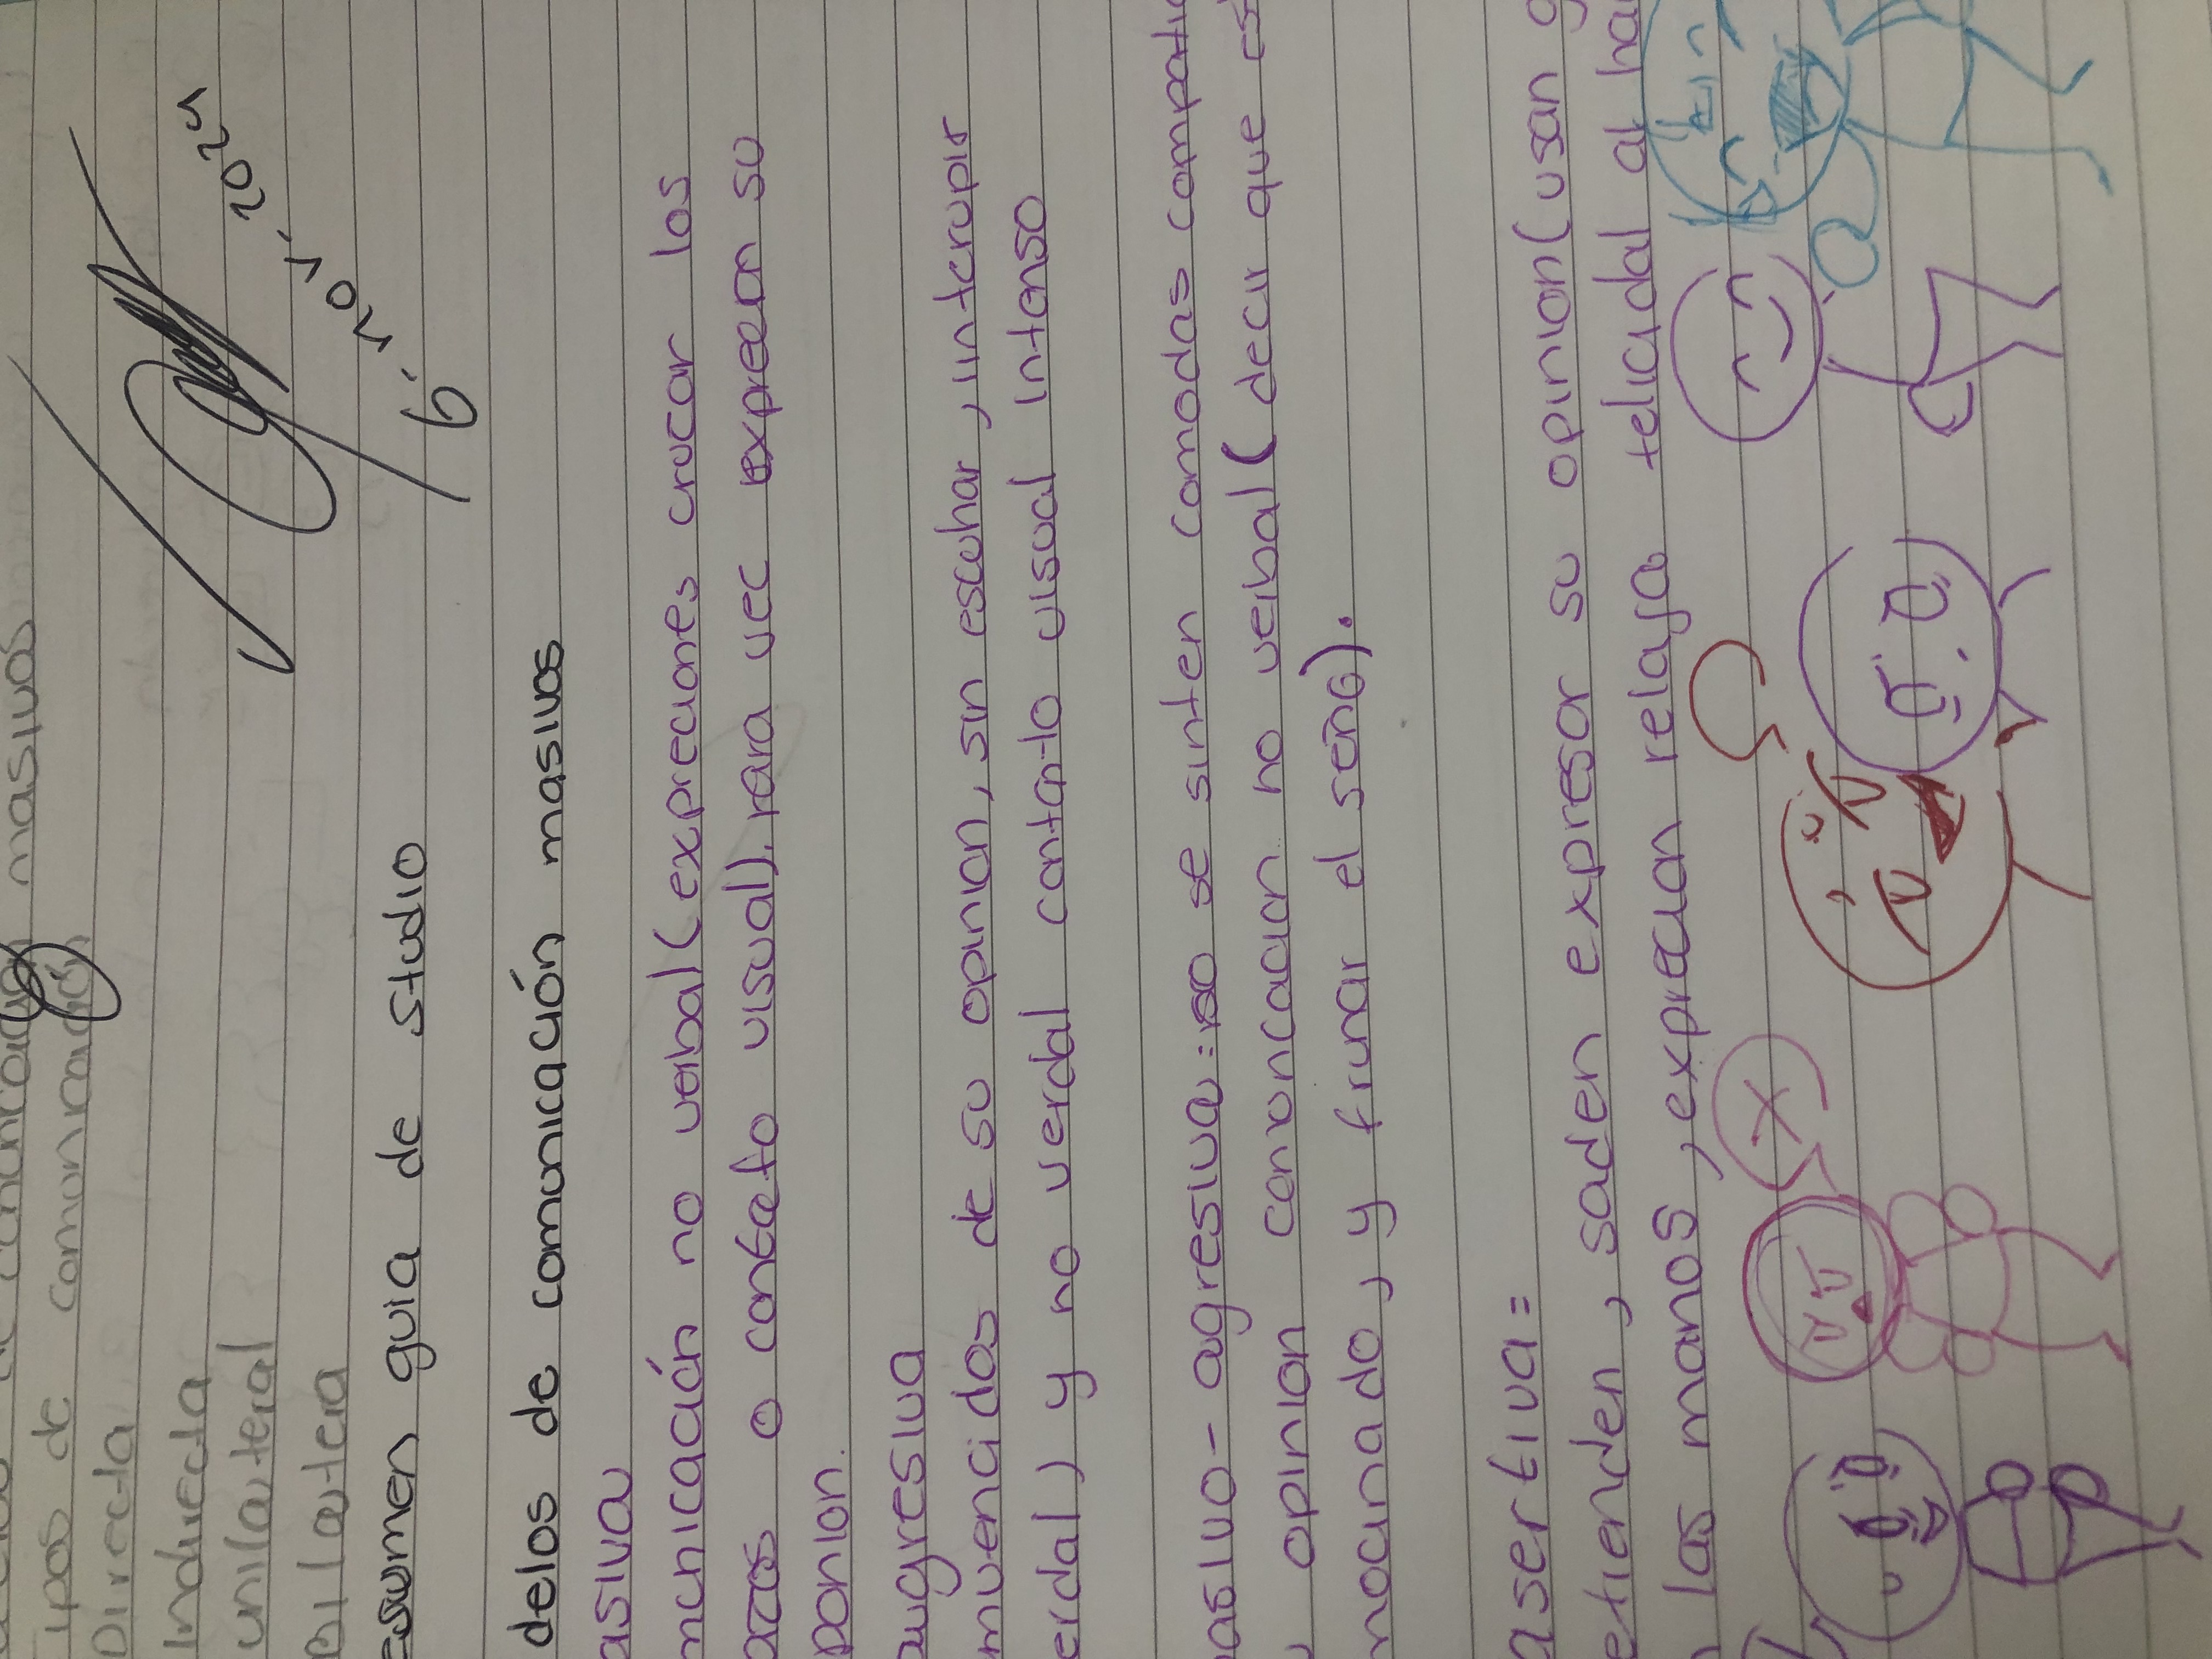 masivos
Tipos de comunicación
Directa
Indirecta
unilateral
Bilatera
6' nov' 2024
Esumen guia de studio
delos de comunicación masivos
asiva
mcnicación no verbal (expreciones crucar los
azos o contacto visual). rara vec exprean su
ponion.
augresiva
mvencidos de su opinion, sin escuhar, interrupir
erdal) y no verdal contanto visual intenso
pasivo - agresiva: no se sinten comodas compati
u opinion comoncacion no verbal (decir que es
nocinado, y frunar el seño).
asertiva:
etienden, saden expresar su opinion (usan g
n las manos, exprecion relaja telicidal al ha